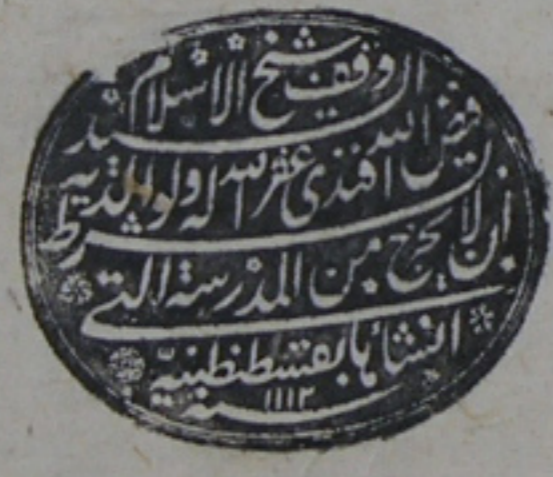 وقف شيخ الاسلام السيد
فيض الله افندى غفر الله له ولوالديه
بشرط ان لا يخرج من المدرسة التى
انشاها بقسطنطينيه
سنة ١١١٢